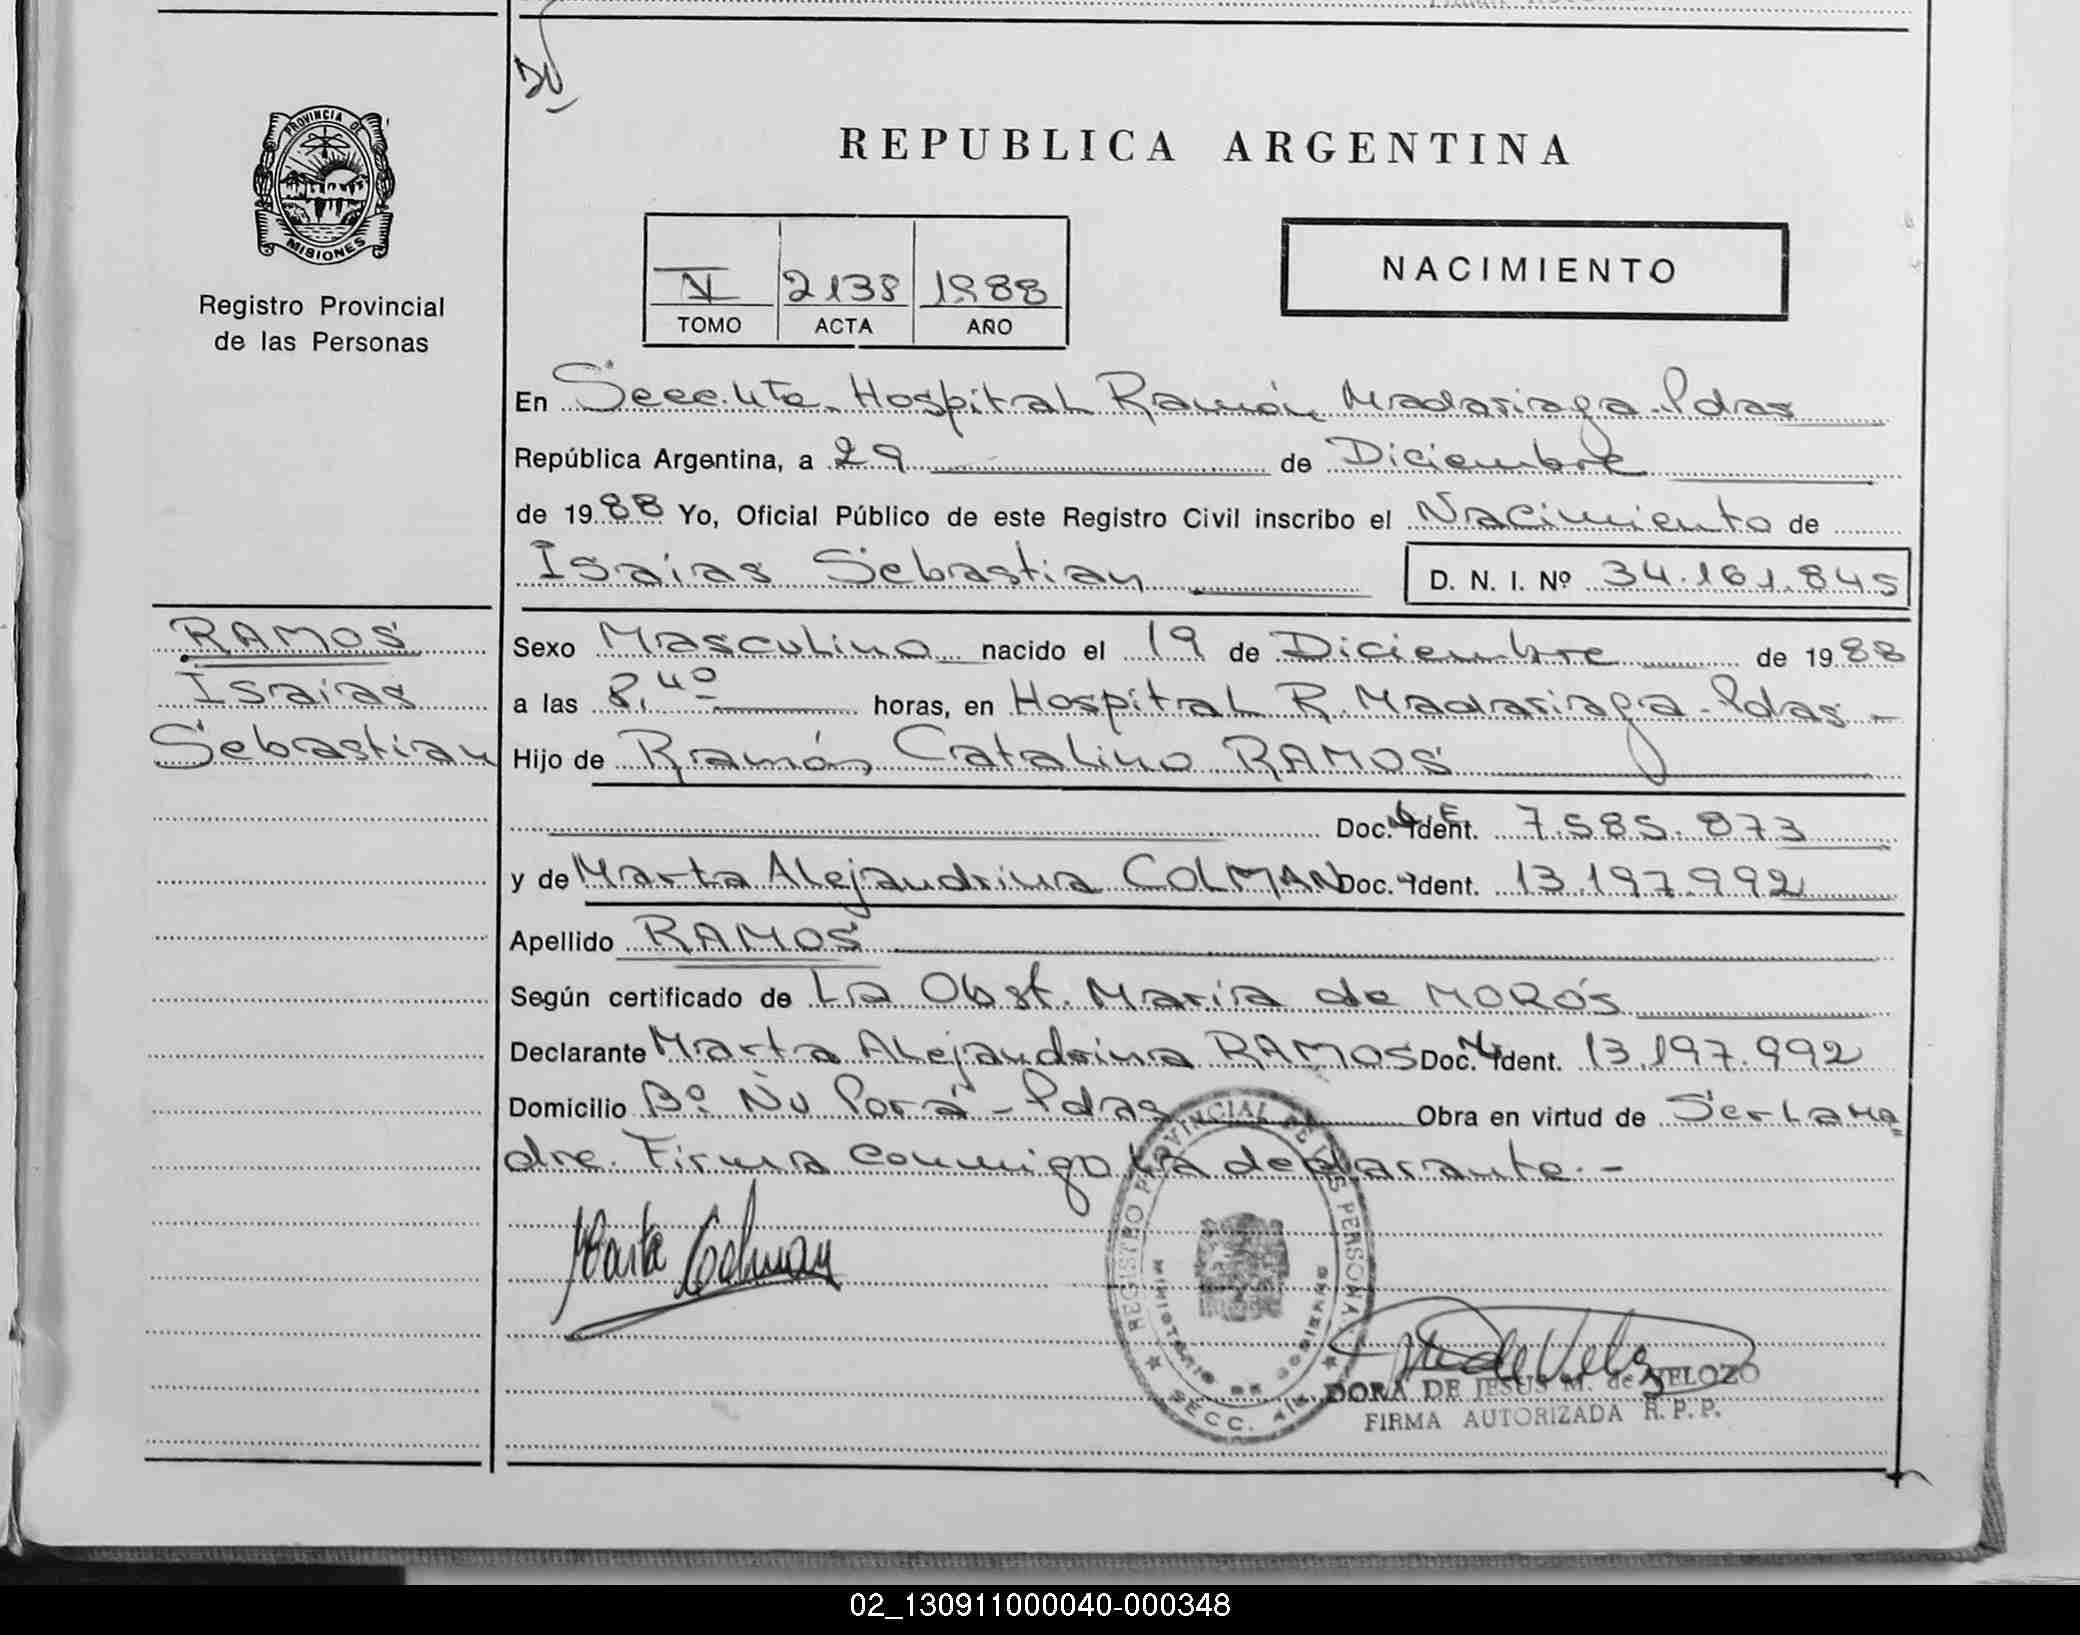 REPUBLICA ARGENTINA
PROVINCIA DE
MISIONES
Registro Provincial
de las Personas
2138 1988
TOMO ACTA AÑO
NACIMIENTO
En Secc.4ta. Hospital Ramón Madariaga.Pdas
República Argentina, a 29 de Diciembre
de 1988 Yo, Oficial Público de este Registro Civil inscribo el Nacimiento de
Isaias Sebastian D. N. I. Nº 34.161.845
RAMOS
Isaias
Sebastian
Sexo Masculino nacido el 19 de Diciembre de 1988
a las 8,40 horas, en Hospital R. Madariaga-Pdas-
Hijo de Ramón Catalino RAMOS
Doc. Ident. 7.585.873
y de Marta Alejandrina COLMAN Doc. Ident. 13.197.992
Apellido RAMOS
Según certificado de La Obst. María de MORO's
Declarante Marta Alejandrina RAMOS Doc. Ident. 13.197.992
Domicilio Bº. Ñu Porá - Pdas Obra en virtud de Ser La Ma
dre. Firma conmigo La declarante.-
Marta Colman
REGISTRO PROVINCIAL DE LAS PERSONAS
MINISTERIO DE GOBIERNO
SECC. 4ta
DORA DE JESUS M. de VELOZO
FIRMA AUTORIZADA R. P. P.
02_130911000040-000348